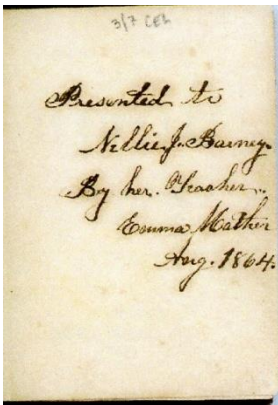 3/7 CEL
Presented to
Nellie J. Barney
By her Teacher.
Emma Mather
Aug. 1864.